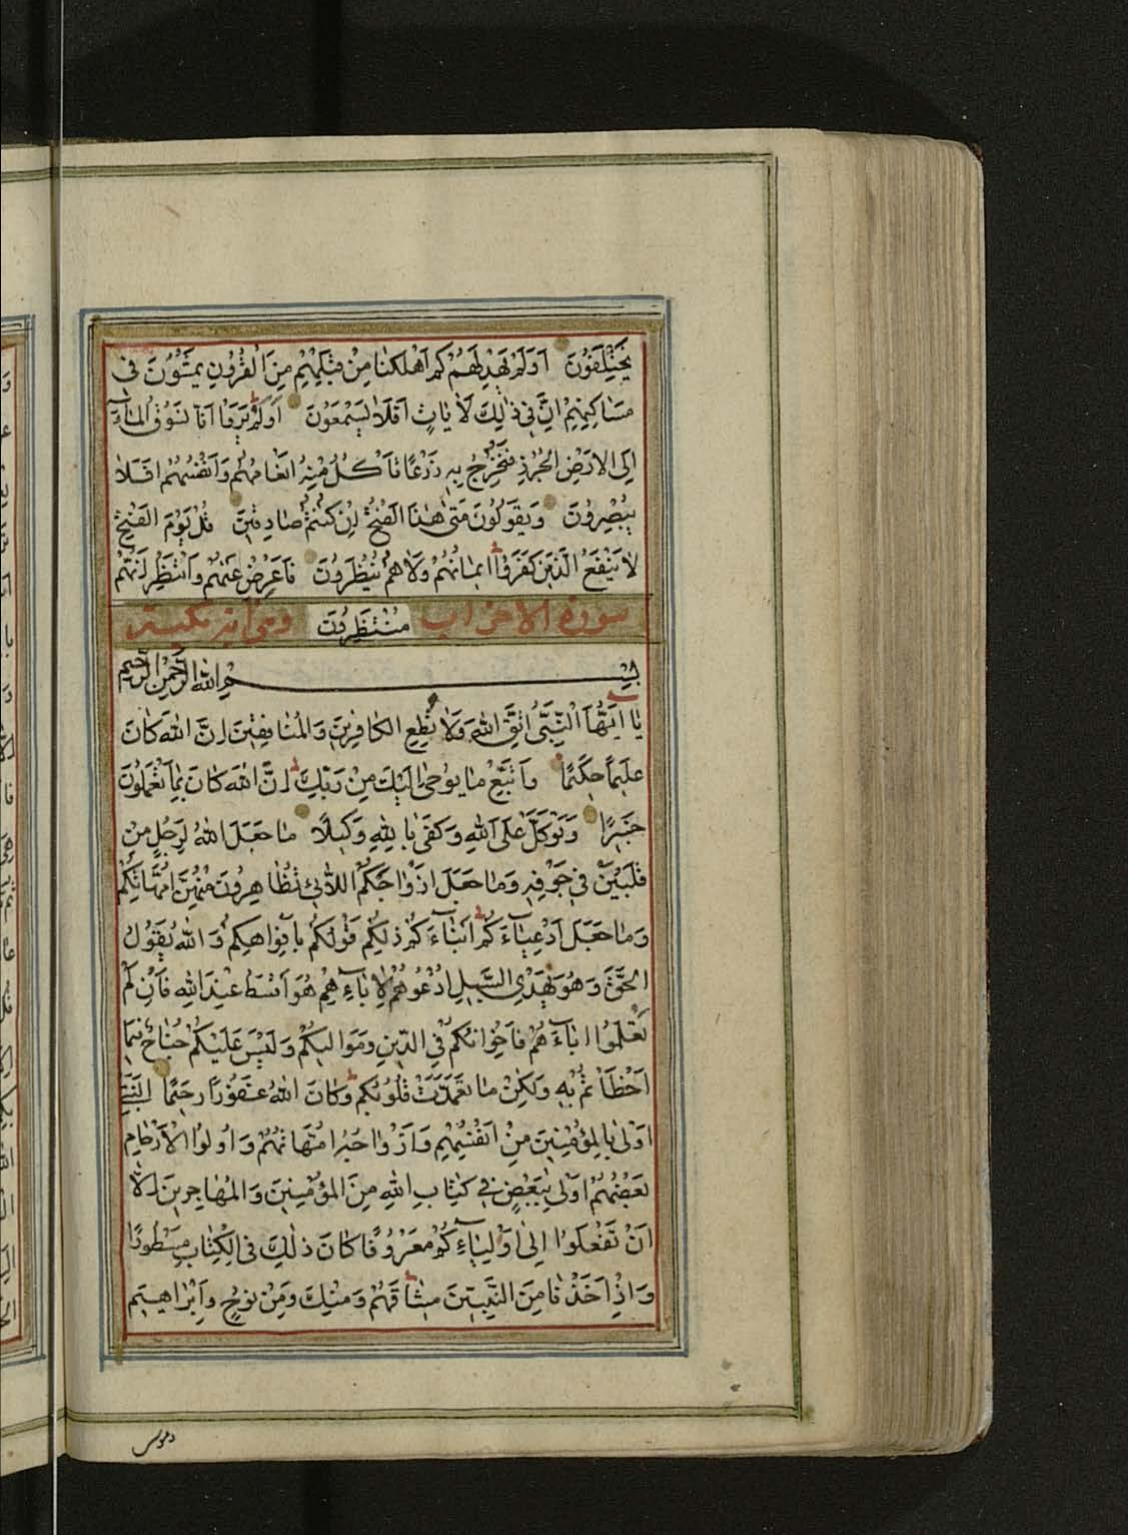 يَخْتَلِفُونَ اَوَلَمْ يَهْدِ لَهُمْ كَمْ اَهْلَكْنَا مِنْ قَبْلِهِمْ مِنَ الْقُرُونِ يَمْشُونَ فِى
مَسَاكِنِهِمْ اِنَّ فِى ذٰلِكَ لَاٰيَاتٍ اَفَلَا يَسْمَعُونَ اَوَلَمْ يَرَوْا اَنَّا نَسُوقُ الْمَاۤءَ
اِلَى الْاَرْضِ الْجُرُزِ فَنُخْرِجُ بِهِ زَرْعًا تَاْكُلُ مِنْهُ اَنْعَامُهُمْ وَاَنْفُسُهُمْ اَفَلَا
يُبْصِرُونَ وَيَقُولُونَ مَتٰى هٰذَا الْفَتْحُ اِنْ كُنْتُمْ صَادِقِينَ قُلْ يَوْمَ الْفَتْحِ
لَا يَنْفَعُ الَّذِينَ كَفَرُوا اِيمَانُهُمْ وَلَا هُمْ يُنْظَرُونَ فَاَعْرِضْ عَنْهُمْ وَانْتَظِرْ اِنَّهُمْ
سورة الاحزاب مُنْتَظِرُونَ
بِسْمِ اللّٰهِ الرَّحْمٰنِ الرَّحِيمِ
يَا اَيُّهَا النَّبِىُّ اتَّقِ اللّٰهَ وَلَا تُطِعِ الْكَافِرِينَ وَالْمُنَافِقِينَ اِنَّ اللّٰهَ كَانَ
عَلِيمًا حَكِيمًا وَاتَّبِعْ مَا يُوحٰى اِلَيْكَ مِنْ رَبِّكَ اِنَّ اللّٰهَ كَانَ بِمَا تَعْمَلُونَ
خَبِيرًا وَتَوَكَّلْ عَلَى اللّٰهِ وَكَفٰى بِاللّٰهِ وَكِيلًا مَا جَعَلَ اللّٰهُ لِرَجُلٍ مِنْ
قَلْبَيْنِ فِى جَوْفِهِ وَمَا جَعَلَ اَزْوَاجَكُمُ اللَّائِى تُظَاهِرُونَ مِنْهُنَّ اُمَّهَاتِكُمْ
وَمَا جَعَلَ اَدْعِيَاۤءَكُمْ اَبْنَاۤءَكُمْ ذٰلِكُمْ قَوْلُكُمْ بِاَفْوَاهِكُمْ وَاللّٰهُ يَقُولُ
الْحَقَّ وَهُوَ يَهْدِى السَّبِيلَ اُدْعُوهُمْ لِاٰبَاۤءِهِمْ هُوَ اَقْسَطُ عِنْدَ اللّٰهِ فَاِنْ لَمْ
تَعْلَمُوا اٰبَاۤءَهُمْ فَاِخْوَانُكُمْ فِى الدِّينِ وَمَوَالِيكُمْ وَلَيْسَ عَلَيْكُمْ جُنَاحٌ فِيمَا
اَخْطَاْتُمْ بِهِ وَلٰكِنْ مَا تَعَمَّدَتْ قُلُوبُكُمْ وَكَانَ اللّٰهُ غَفُورًا رَحِيمًا اَلنَّبِىُّ
اَوْلٰى بِالْمُؤْمِنِينَ مِنْ اَنْفُسِهِمْ وَاَزْوَاجُهُ اُمَّهَاتُهُمْ وَاُولُوا الْاَرْحَامِ
بَعْضُهُمْ اَوْلٰى بِبَعْضٍ فِى كِتَابِ اللّٰهِ مِنَ الْمُؤْمِنِينَ وَالْمُهَاجِرِينَ اِلَّا
اَنْ تَفْعَلُوا اِلٰى اَوْلِيَاۤءِكُمْ مَعْرُوفًا كَانَ ذٰلِكَ فِى الْكِتَابِ مَسْطُورًا
وَاِذْ اَخَذْنَا مِنَ النَّبِيِّينَ مِيثَاقَهُمْ وَمِنْكَ وَمِنْ نُوحٍ وَاِبْرَاهِيمَ